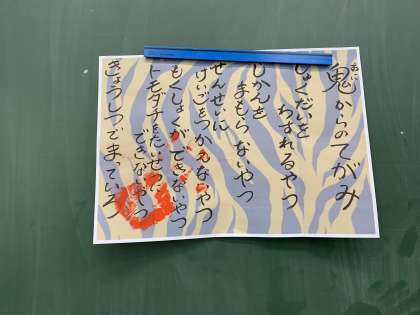 鬼からのてがみ
おに
しゅくだいを
わすれるやつ
じかんを
まもらないやつ
せんせいに
けいごをつかえないやつ
もくしょくができないやつ
トモダチをたいせつに
できないやつ
きょうしつでまっていろ